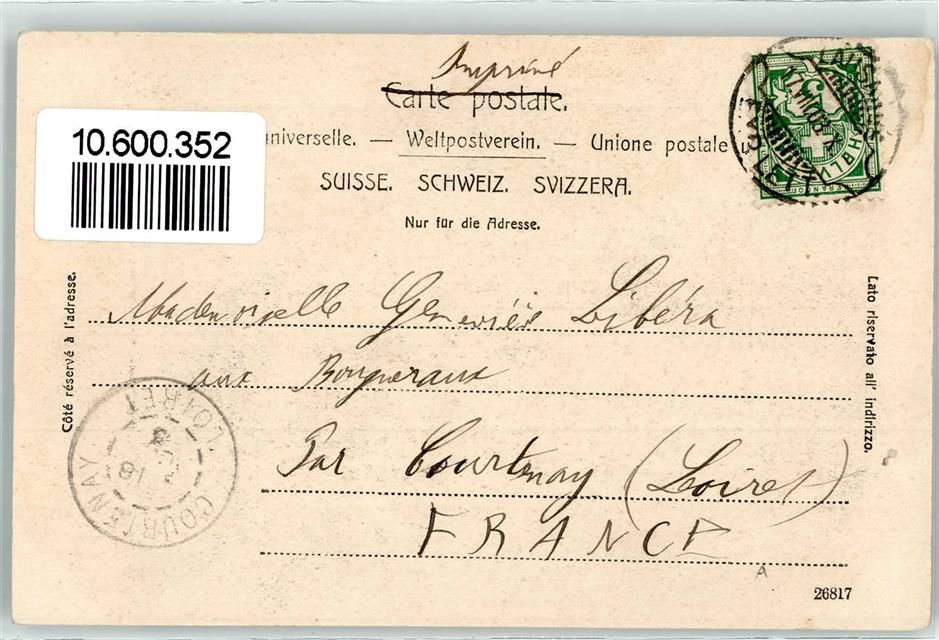 Imprimé
Carte postale.
10.600.352
universelle. — Weltpostverein. — Unione postale
SUISSE. SCHWEIZ. SVIZZERA.
Nur für die Adresse.
Côté réservé à l'adresse.
Lato riservato all' indirizzo.
Mademoiselle Geneviève Libéra
aux
Par Courtenay (Loiret)
FRANCE
COURTENAY
LOIRET
A
26817